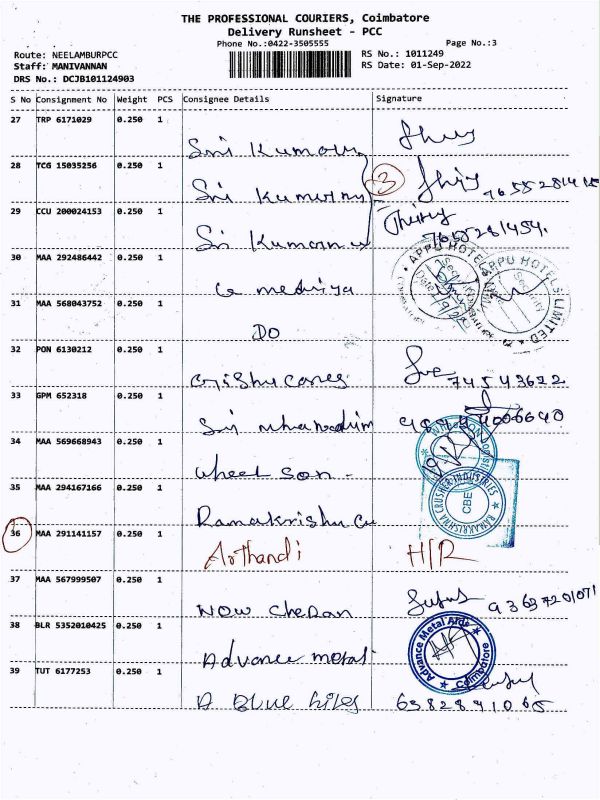 THE PROFESSIONAL COURIERS, Coimbatore
Delivery Runsheet - PCC
Phone No.:0422-3505555 Page No.:3
Route: NEELAMBURPCC RS No.: 1011249
Staff: MANIVANNAN RS Date: 01-Sep-2022
DRS No.: DCJB101124903
S No Consignment No Weight PCS Consignee Details Signature
27 TRP 6171029 0.250 1
Sri Kumaran
28 TCG 15035256 0.250 1
Sri Kumaran 3
29 CCU 200024153 0.250 1
Sri Kumaran 7655281454.
30 MAA 292486442 0.250 1
APPU HOTELS LIMITED
31 MAA 568043752 0.250 1
DO
32 PON 6130212 0.250 1
74543622
33 GPM 652318 0.250 1
Sri
34 MAA 569668943 0.250 1
Wheel Son -
35 MAA 294167166 0.250 1
RAMAKRISHNA CRUSHER INDUSTRIES
CBE
Ramakrishna
36 MAA 291141157 0.250 1
Arthandi H/R
37 MAA 567999507 0.250 1
Now Cheran
38 BLR 5352010425 0.250 1
Advance metal
Advance Metal Aids Coimbatore
39 TUT 6177253 0.250 1
A Blue hiles 6382891065